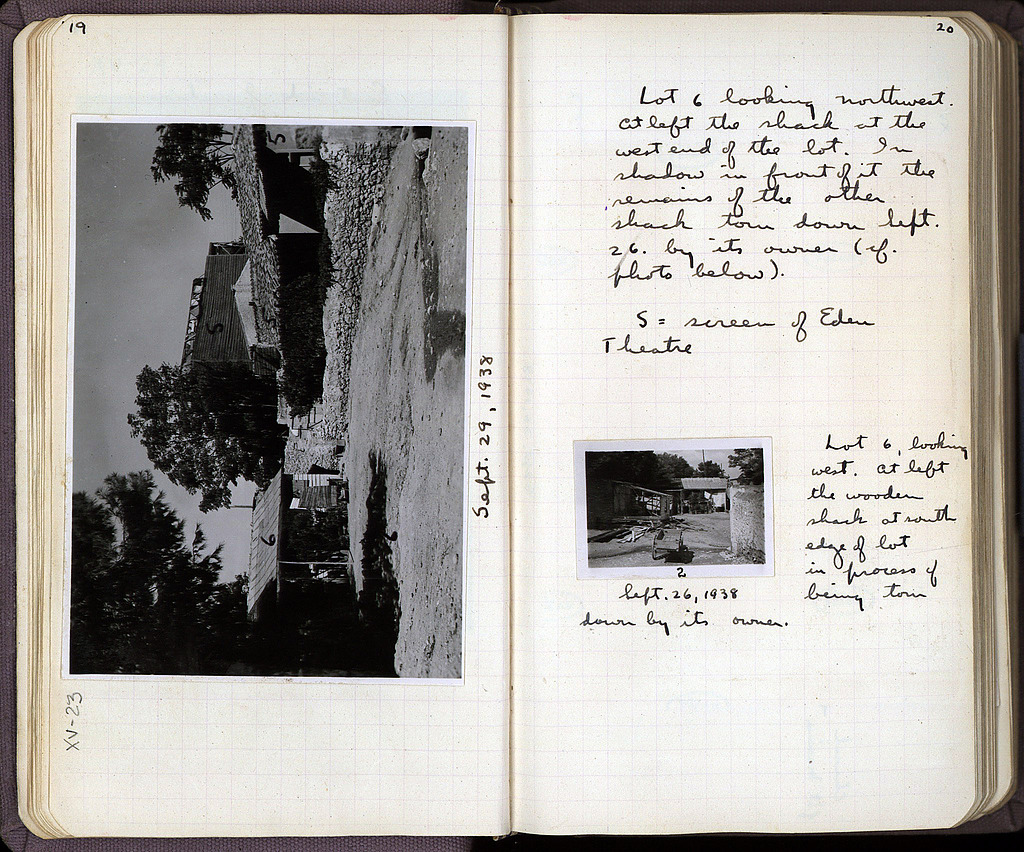 19
5
S
6
6
Sept. 29, 1938
XV-23
20
Lot 6 looking northwest.
At left the shack at the
west end of the lot. In
shadow in front of it the
remains of the other
shack torn down Sept.
26. by its owner (cf.
photo below).
S = screen of Eden
Theatre
Lot 6, looking
west. At left
the wooden
shack at south
edge of lot
in process of
being torn
2
Sept. 26, 1938
down by its owner.